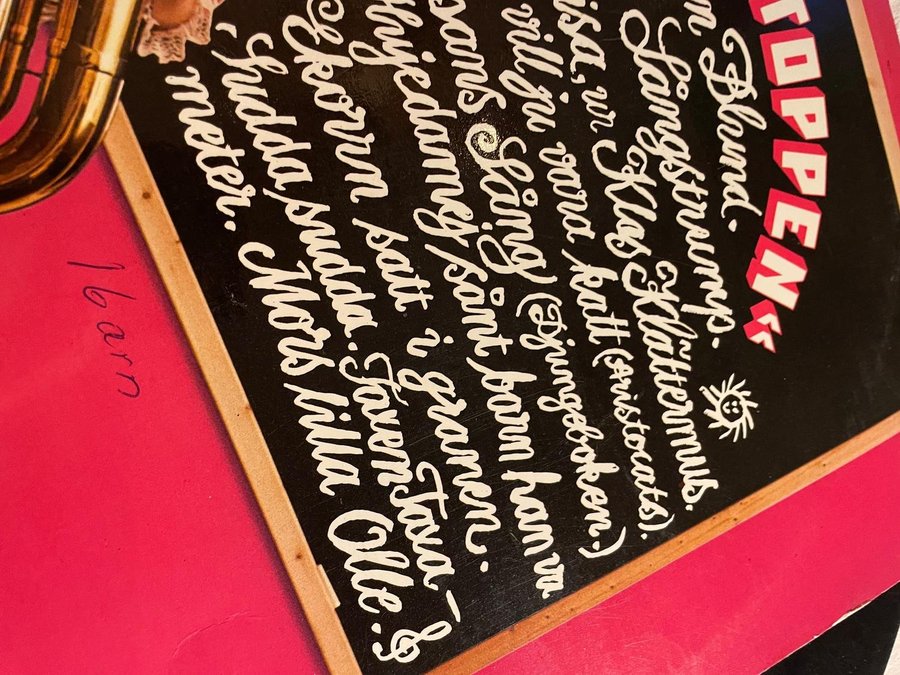 TOPPEN«
n Blund.
Långstrump.
isa, ur Klas Klättermus.
vill ju vara katt (aristocats).
sans Sång (Djungeboken.)
hjedamej sånt barn han va
Ekorrn satt i granen.
, Sudda, sudda. Taxen Taxa-
meter. Mors lilla Olle.
1 barn